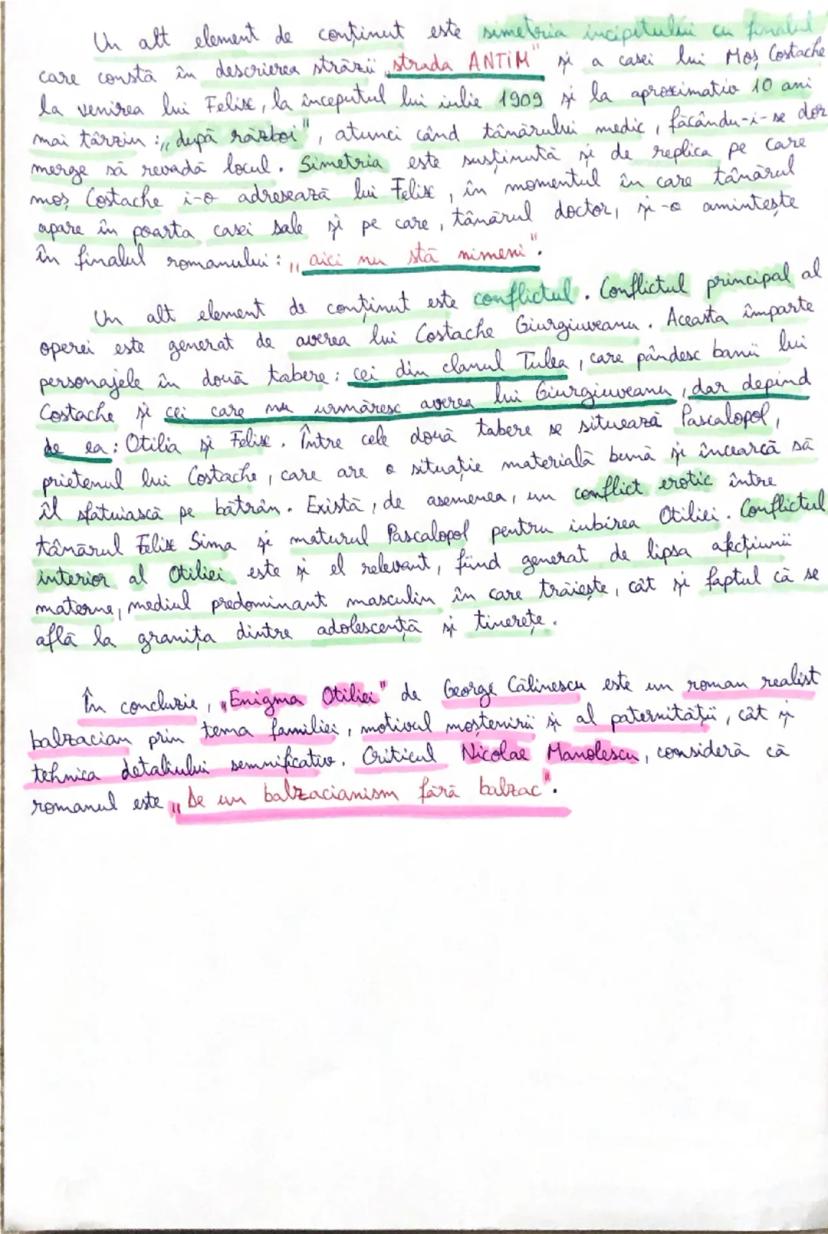 Un alt element de conținut este simetria incipitului cu finalul
care constă în descrierea străzii „strada ANTIM" și a casei lui Moș Costache
la venirea lui Felix, la începutul lui iulie 1909 și la aproximativ 10 ani
mai târziu: „după război", atunci când tânărului medic, făcându-i-se dor
merge să revadă locul. Simetria este susținută și de replica pe care
moș Costache i-o adresează lui Felix, în momentul în care tânărul
apare în poarta casei sale și pe care, tânărul doctor, și-o amintește
în finalul romanului: „aici nu stă nimeni".
Un alt element de conținut este conflictul. Conflictul principal al
operei este generat de averea lui Costache Giurgiuveanu. Aceasta împarte
personajele în două tabere: cei din clanul Tulea, care pândesc banii lui
Costache și cei care nu urmăresc averea lui Giurgiuveanu, dar depind
de ea: Otilia și Felix. Între cele două tabere se situează Pascalopol,
prietenul lui Costache, care are o situație materială bună și încearcă să
îl sfătuiască pe bătrân. Există, de asemenea, un conflict erotic între
tânărul Felix Sima și maturul Pascalopol pentru iubirea Otiliei. Conflictul
interior al Otiliei este și el relevant, fiind generat de lipsa afecțiunii
materne, mediul predominant masculin în care trăiește, cât și faptul că se
află la granița dintre adolescență și tinerețe.
În concluzie, „Enigma Otiliei" de George Călinescu este un roman realist
balzacian prin tema familiei, motivul moștenirii și al paternității, cât și
tehnica detaliului semnificativ. Criticul Nicolae Manolescu, consideră că
romanul este „de un balzacianism fără balzac".